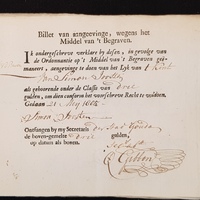 Billet van aangeevinge, wegens het
Middel van 't Begraven.
Ik ondergeschreve verklare by desen, in gevolge van
de Ordonnantie op 't Middel van 't Begraven geë-
maneert, aangevinge te doen van het Lyk van 't Kint
van Simon
als gehoorende onder de Classe van drie
gulden, om dien conform het voorschreve Recht te voldoen.
Gedaan 21 May
Simon
Ontfangen by my Secretaris der Stad Gouda
de boven-gemelte drie gulden,